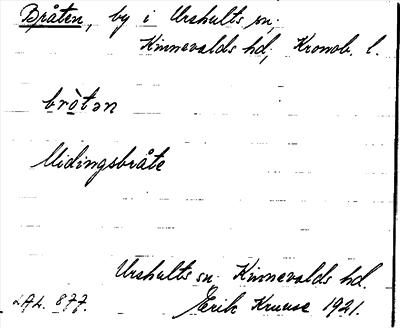 Bråten, by i Urshults sn.
Kinnevalds hd, Kronob. l.
bròtən
Midingsbråte
Urshults sn. Kinnevalds hd.
LAL. 877. Erik Kruuse 1921.